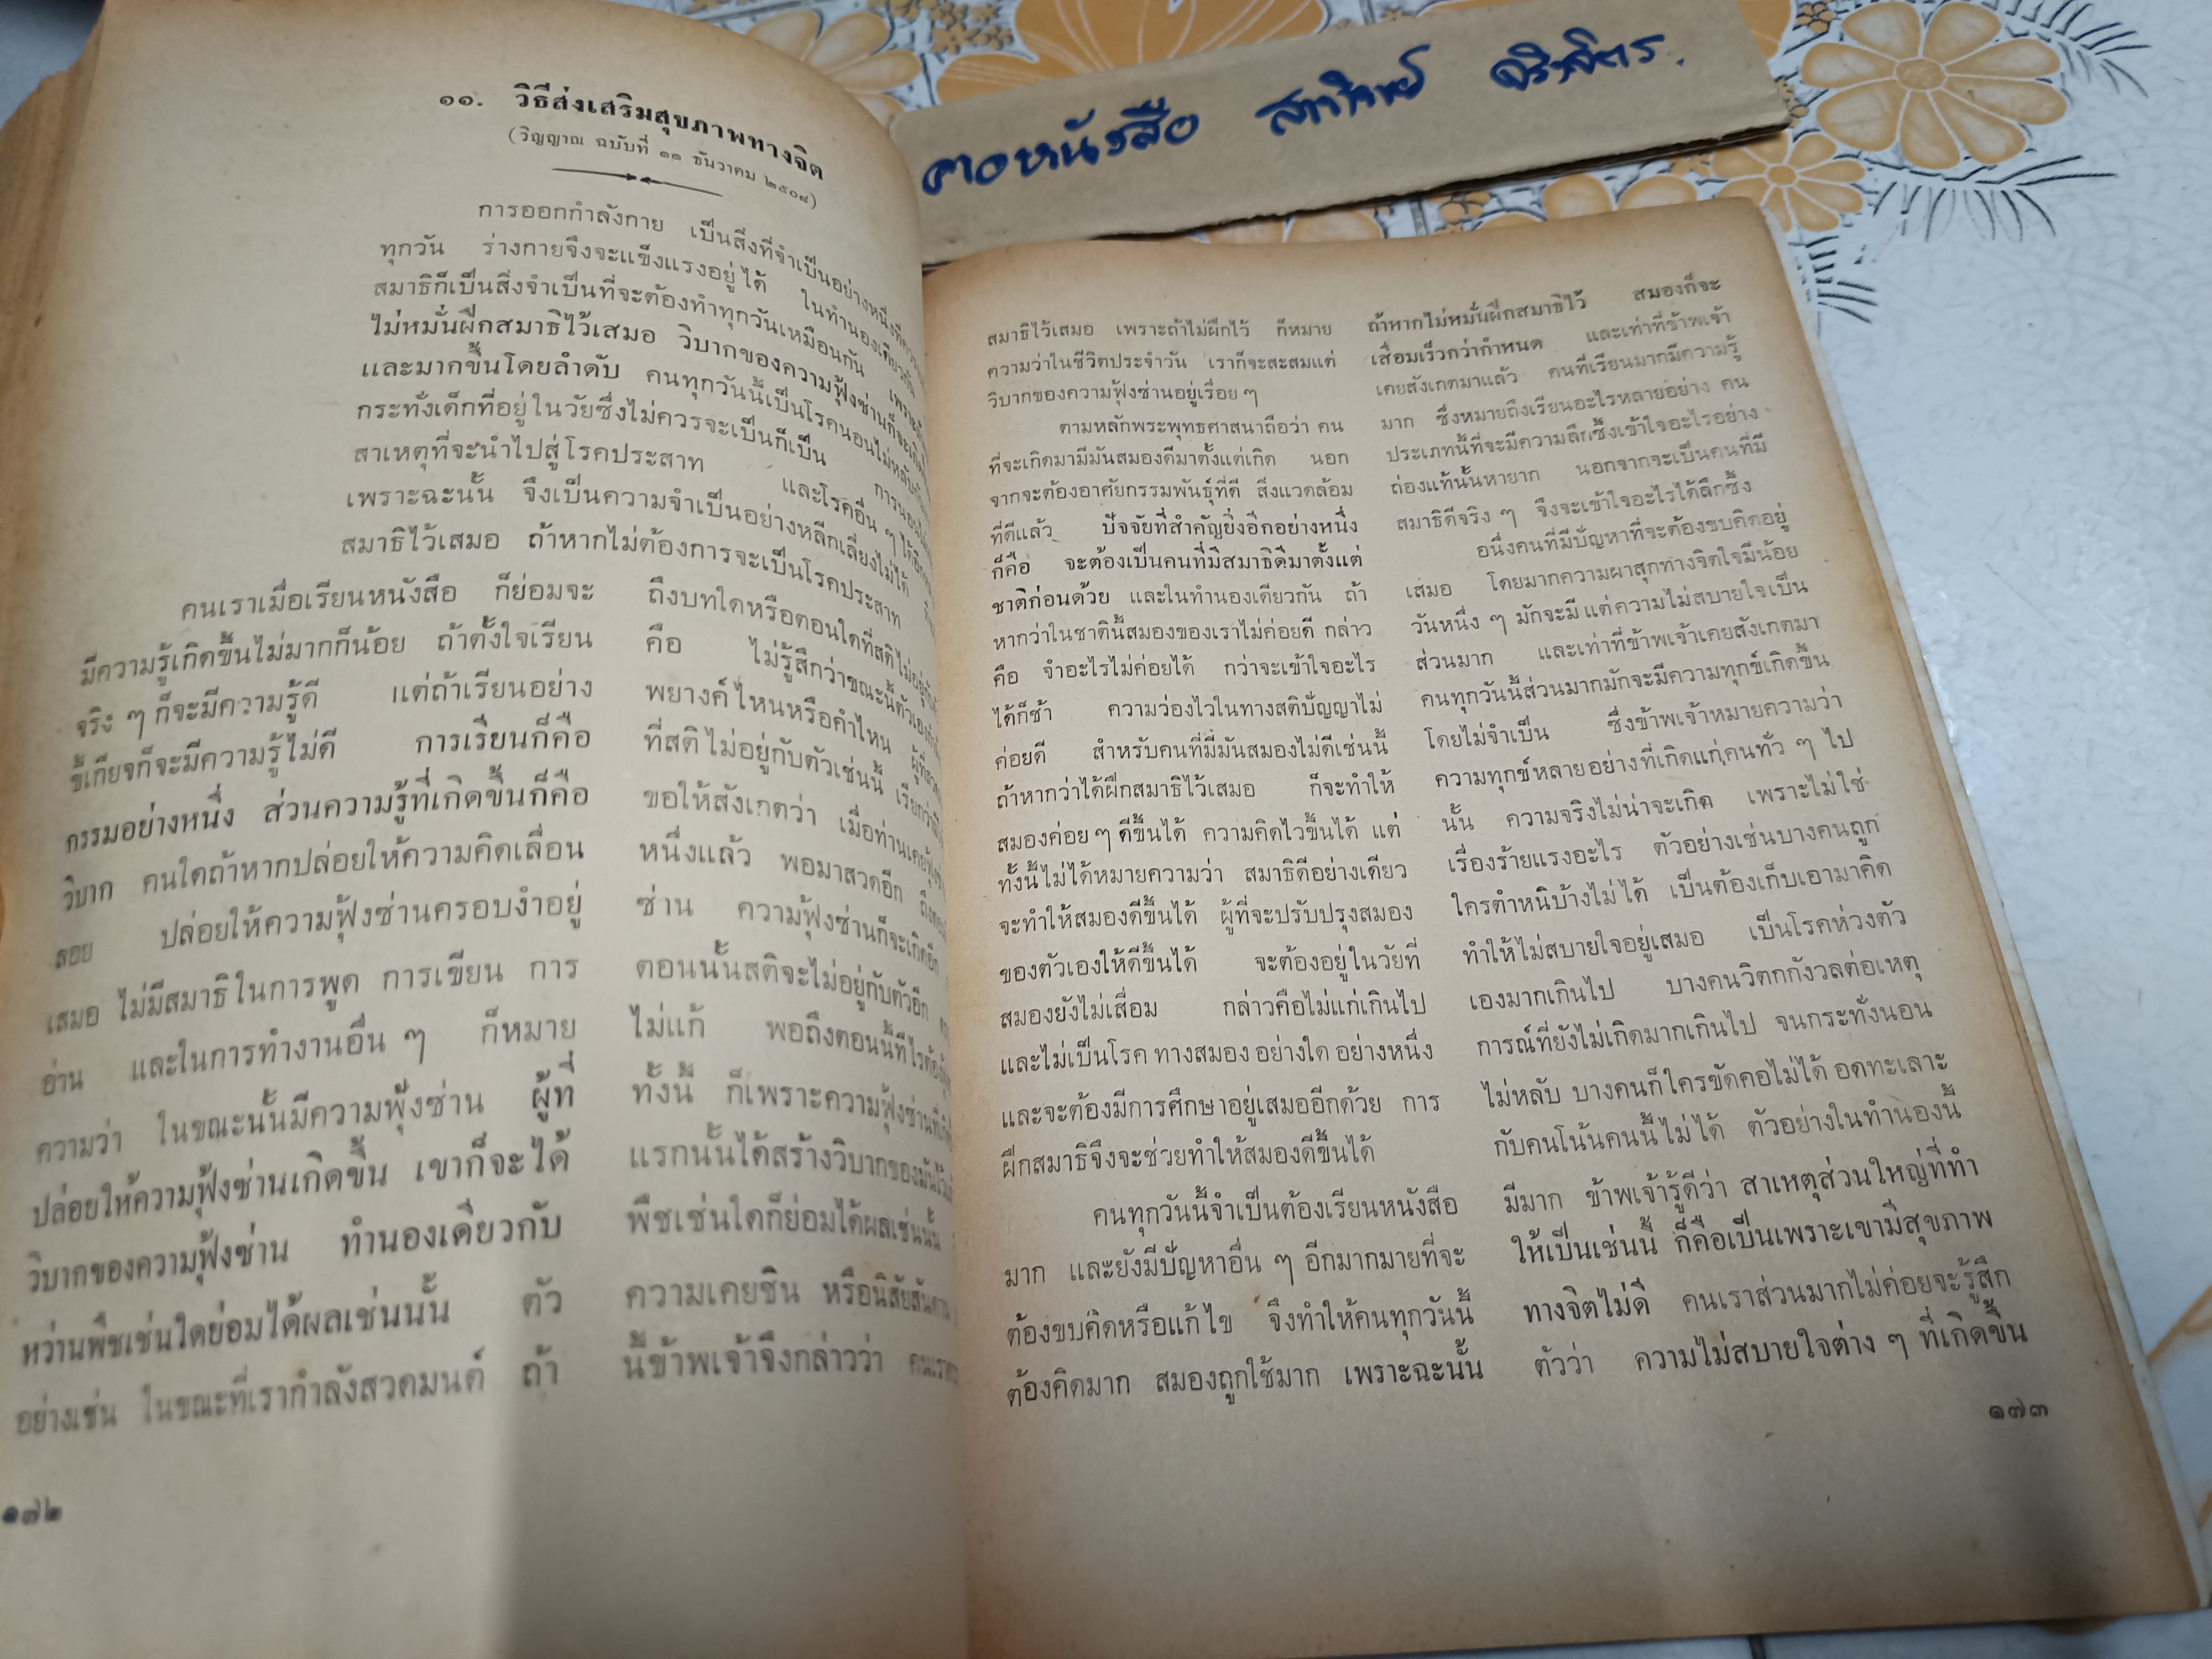 ๑๑. วิธีส่งเสริมสุขภาพทางจิต
(วิญญาณ ฉบับที่ ๑๑ ธันวาคม ๒๕๐๔)
การออกกำลังกาย เป็นสิ่งที่จำเป็นอย่างหนึ่งที่
ทุกวัน ร่างกายจึงจะแข็งแรงอยู่ได้ ในทำนองเดียวกัน
สมาธิก็เป็นสิ่งจำเป็นที่จะต้องทำทุกวันเหมือนกัน เพราะถ้า
ไม่หมั่นฝึกสมาธิไว้เสมอ วิบากของความฟุ้งซ่านก็จะเกิด
และมากขึ้นโดยลำดับ คนทุกวันนี้เป็นโรคนอนไม่หลับกัน
กระทั่งเด็กที่อยู่ในวัยซึ่งไม่ควรจะเป็นก็เป็น การนอนไม่
สาเหตุที่จะนำไปสู่โรคประสาท และโรคอื่น ๆ ได้อีก
เพราะฉะนั้น จึงเป็นความจำเป็นอย่างหลีกเลี่ยงไม่ได้
สมาธิไว้เสมอ ถ้าหากไม่ต้องการจะเป็นโรคประสาท
คนเราเมื่อเรียนหนังสือ ก็ย่อมจะ
มีความรู้เกิดขึ้นไม่มากก็น้อย ถ้าตั้งใจเรียน
จริง ๆ ก็จะมีความรู้ดี แต่ถ้าเรียนอย่าง
ขี้เกียจก็จะมีความรู้ไม่ดี การเรียนก็คือ
กรรมอย่างหนึ่ง ส่วนความรู้ที่เกิดขึ้นก็คือ
วิบาก คนใดถ้าหากปล่อยให้ความคิดเลื่อน
ลอย ปล่อยให้ความฟุ้งซ่านครอบงำอยู่
เสมอ ไม่มีสมาธิในการพูด การเขียน การ
อ่าน และในการทำงานอื่น ๆ ก็หมาย
ความว่า ในขณะนั้นมีความฟุ้งซ่าน ผู้ที่
ปล่อยให้ความฟุ้งซ่านเกิดขึ้น เขาก็จะได้
วิบากของความฟุ้งซ่าน ทำนองเดียวกับ
หว่านพืชเช่นใดย่อมได้ผลเช่นนั้น ตัว
อย่างเช่น ในขณะที่เรากำลังสวดมนต์ ถ้า
ถึงบทใดหรือตอนใดที่สติไม่อยู่กับ
คือ ไม่รู้สึกว่าขณะนี้ตัวเองกำลัง
พยางค์ไหนหรือคำไหน ผู้ที่สวด
ที่สติไม่อยู่กับตัวเช่นนี้ เรียกว่า
ขอให้สังเกตว่า เมื่อท่านเคยฟุ้งซ่าน
หนึ่งแล้ว พอมาสวดอีก ถึงตอน
ซ่าน ความฟุ้งซ่านก็จะเกิดอีก
ตอนนั้นสติจะไม่อยู่กับตัวอีก
ไม่แก้ พอถึงตอนนี้ทีไรต้อง
ทั้งนี้ ก็เพราะความฟุ้งซ่านที่
แรกนั้นได้สร้างวิบากของมันไว้
พืชเช่นใดก็ย่อมได้ผลเช่นนั้น
ความเคยชิน หรือนิสัยสันดาน
นี้ข้าพเจ้าจึงกล่าวว่า
๑๗๒
คาดหนังสือ
สมาธิไว้เสมอ เพราะถ้าไม่ฝึกไว้ ก็หมาย
ความว่าในชีวิตประจำวัน เราก็จะสะสมแต่
วิบากของความฟุ้งซ่านอยู่เรื่อย ๆ
ตามหลักพระพุทธศาสนาถือว่า คน
ที่จะเกิดมามีมันสมองดีมาตั้งแต่เกิด นอก
จากจะต้องอาศัยกรรมพันธุ์ที่ดี สิ่งแวดล้อม
ที่ดีแล้ว ปัจจัยที่สำคัญยิ่งอีกอย่างหนึ่ง
ก็คือ จะต้องเป็นคนที่มีสมาธิดีมาตั้งแต่
ชาติก่อนด้วย และในทำนองเดียวกัน ถ้า
หากว่าในชาตินี้สมองของเราไม่ค่อยดี กล่าว
คือ จำอะไรไม่ค่อยได้ กว่าจะเข้าใจอะไร
ได้ก็ช้า ความว่องไวในทางสติปัญญาไม่
ค่อยดี สำหรับคนที่มีมันสมองไม่ดีเช่นนี้
ถ้าหากว่าได้ฝึกสมาธิไว้เสมอ ก็จะทำให้
สมองค่อย ๆ ดีขึ้นได้ ความคิดไวขึ้นได้ แต่
ทั้งนี้ไม่ได้หมายความว่า สมาธิดีอย่างเดียว
จะทำให้สมองดีขึ้นได้ ผู้ที่จะปรับปรุงสมอง
ของตัวเองให้ดีขึ้นได้ จะต้องอยู่ในวัยที่
สมองยังไม่เสื่อม กล่าวคือไม่แก่เกินไป
และไม่เป็นโรคทางสมองอย่างใดอย่างหนึ่ง
และจะต้องมีการศึกษาอยู่เสมออีกด้วย การ
ฝึกสมาธิจึงจะช่วยทำให้สมองดีขึ้นได้
คนทุกวันนี้จำเป็นต้องเรียนหนังสือ
มาก และยังมีปัญหาอื่น ๆ อีกมากมายที่จะ
ต้องขบคิดหรือแก้ไข จึงทำให้คนทุกวันนี้
ต้องคิดมาก สมองถูกใช้มาก เพราะฉะนั้น
ถ้าหากไม่หมั่นฝึกสมาธิไว้ สมองก็จะ
เสื่อมเร็วกว่ากำหนด และเท่าที่ข้าพเจ้า
เคยสังเกตมาแล้ว คนที่เรียนมากมีความรู้
มาก ซึ่งหมายถึงเรียนอะไรหลายอย่าง คน
ประเภทนี้ที่จะมีความลึกซึ้งเข้าใจอะไรอย่าง
ถ่องแท้นั้นหายาก นอกจากจะเป็นคนที่มี
สมาธิดีจริง ๆ จึงจะเข้าใจอะไรได้ลึกซึ้ง
อนึ่งคนที่มีปัญหาที่จะต้องขบคิดอยู่
เสมอ โดยมากความผาสุกทางจิตใจมีน้อย
วันหนึ่ง ๆ มักจะมีแต่ความไม่สบายใจเป็น
ส่วนมาก และเท่าที่ข้าพเจ้าเคยสังเกตมา
คนทุกวันนี้ส่วนมากมักจะมีความทุกข์เกิดขึ้น
โดยไม่จำเป็น ซึ่งข้าพเจ้าหมายความว่า
ความทุกข์หลายอย่างที่เกิดแก่คนทั่ว ๆ ไป
นั้น ความจริงไม่น่าจะเกิด เพราะไม่ใช่
เรื่องร้ายแรงอะไร ตัวอย่างเช่นบางคนถูก
ใครตำหนิบ้างไม่ได้ เป็นต้องเก็บเอามาคิด
ทำให้ไม่สบายใจอยู่เสมอ เป็นโรคห่วงตัว
เองมากเกินไป บางคนวิตกกังวลต่อเหตุ
การณ์ที่ยังไม่เกิดมากเกินไป จนกระทั่งนอน
ไม่หลับ บางคนก็ใครขัดคอไม่ได้ อดทะเลาะ
กับคนโน้นคนนี้ไม่ได้ ตัวอย่างในทำนองนี้
มีมาก ข้าพเจ้ารู้ดีว่า สาเหตุส่วนใหญ่ที่ทำ
ให้เป็นเช่นนี้ ก็คือเป็นเพราะเขามีสุขภาพ
ทางจิตไม่ดี คนเราส่วนมากไม่ค่อยจะรู้สึก
ตัวว่า ความไม่สบายใจต่าง ๆ ที่เกิดขึ้น
๑๗๓